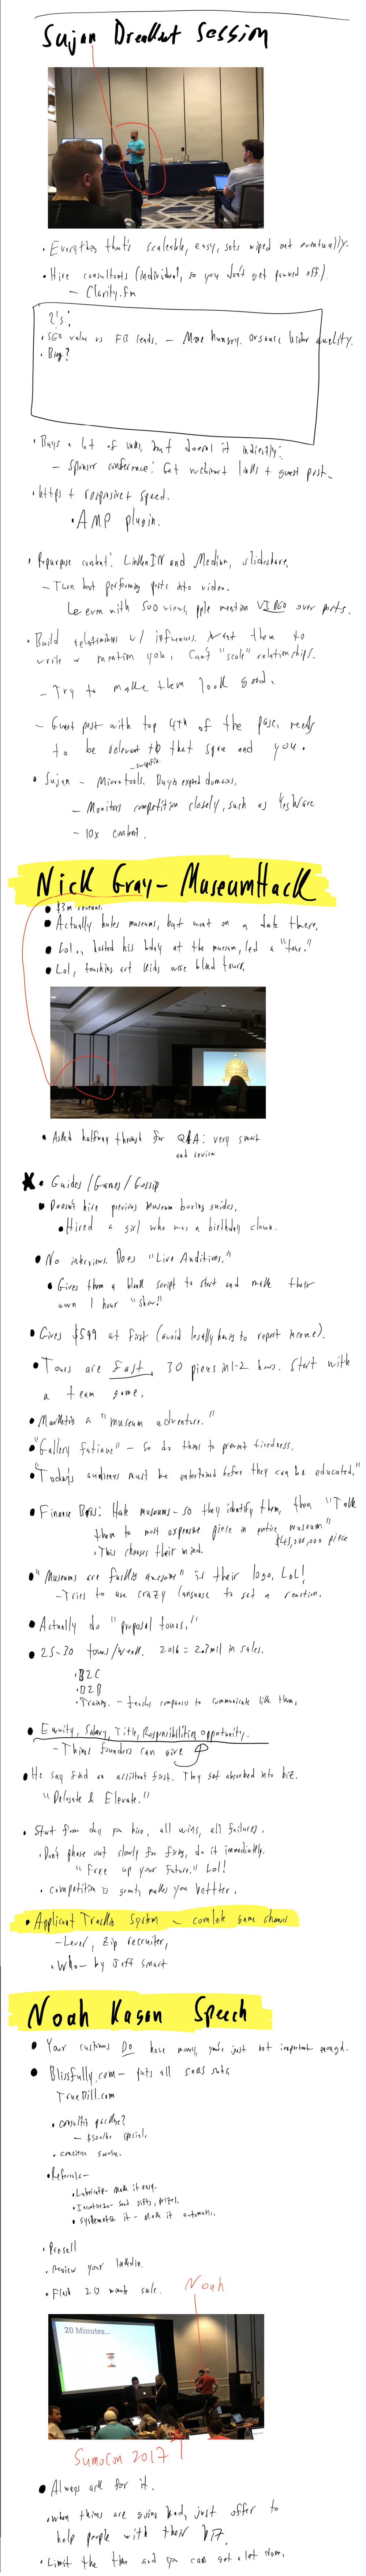 Sujan Breakout Session
• Everything that's scaleable, easy, gets wiped out eventually.
• Hire consultants (individual, so you don't get pawned off).
– Clarity.fm
?'s:
• SEO value vs FB leads. – More hungry. Organic higher quality.
• Bing?
• Buys a lot of links, but doesn't it indirectly:
– Sponsor conference: Get webinar links + guest post.
• https + responsive + speed.
• AMP plugin.
• Repurpose content: LinkedIn and Medium, slideshare.
– Turn best performing posts into video.
Le even with 500 views, ppl mention VIDEO over posts.
• Build relationships w/ influencers. Want them to
write or mention you. Can't "scale" relationships.
– Try to make them look good.
– Guest post with top 4th of the page, needs
to be relevant to that space and you.
• Sujan – Microtools. Buys expired domains.
– Monitors competition closely, such as YesWare
– 10x content.
Nick Gray – MuseumHack
• $3m revenue.
• Actually hates museums, but went on a date there.
• Lol., hosted his bday at the museum, led a "tour."
• Lol, touching art kids were blind tours.
• Asked halfway through for Q&A: very smart
and
• Guides/Games/Gossip
• Doesn't hire previous museum boring guides.
• Hired a girl who was a birthday clown.
• No interviews. Does "Live Auditions."
• Gives them a blank script to start and make their
own 1 hour "show!"
• Gives $599 at first (avoid legally having to report income).
• Tours are fast. 30 pieces in 1-2 hours. Start with
a team game.
• Marketing a "museum adventure."
• "Gallery fatigue" – so do things to prevent tiredness.
• "Today's audiences must be entertained before they can be educated."
• Finance Bros: Hate museums – so they identify them, then "Take
them to most expensive piece in entire museum"
$45,000,000 piece
• This changes their mind.
• "Museums are fucking awesome" is their logo. LoL!
– Tries to use crazy language to get a reaction.
• Actually do "proposal tours."
• 25-30 tours/week. 2016 = 2.7mil in sales.
• B2C
• B2B
• Training. – teaches companies to communicate like them.
• Equity, Salary, Title, Responsibilities, opportunity.
– Things founders can give
• He say find an assistant first. They get absorbed into biz.
"Delegate & Elevate."
• Start from day you hire, all wins, all failures.
• Don't phase out slowly for firing, do it immediately.
"Free up your future." Lol!
• competition is great, makes you bettter.
• Applicant Tracking System – complete game changer
– Lever, Zip recruiter,
• Who – by Jeff Smart
Noah Kagan Speech
• Your customers DO have money, you're just not important enough.
• Blissfully.com – gets all saas subs,
TrueBill.com
• consulting package?
– special.
• concierge service.
• Referrals –
• Lubricate – Make it easy.
• Incentivize – Send gifts, prizes.
• Systematize it – Make it automatic.
• Presell
• Review your linkedin.
• Flash 20 minute sale.
Noah
20 Minutes...
SumoCon 2017
• Always ask for it.
• when things are going bad, just offer to
help people with their biz.
• Limit the time and you can get a lot done.